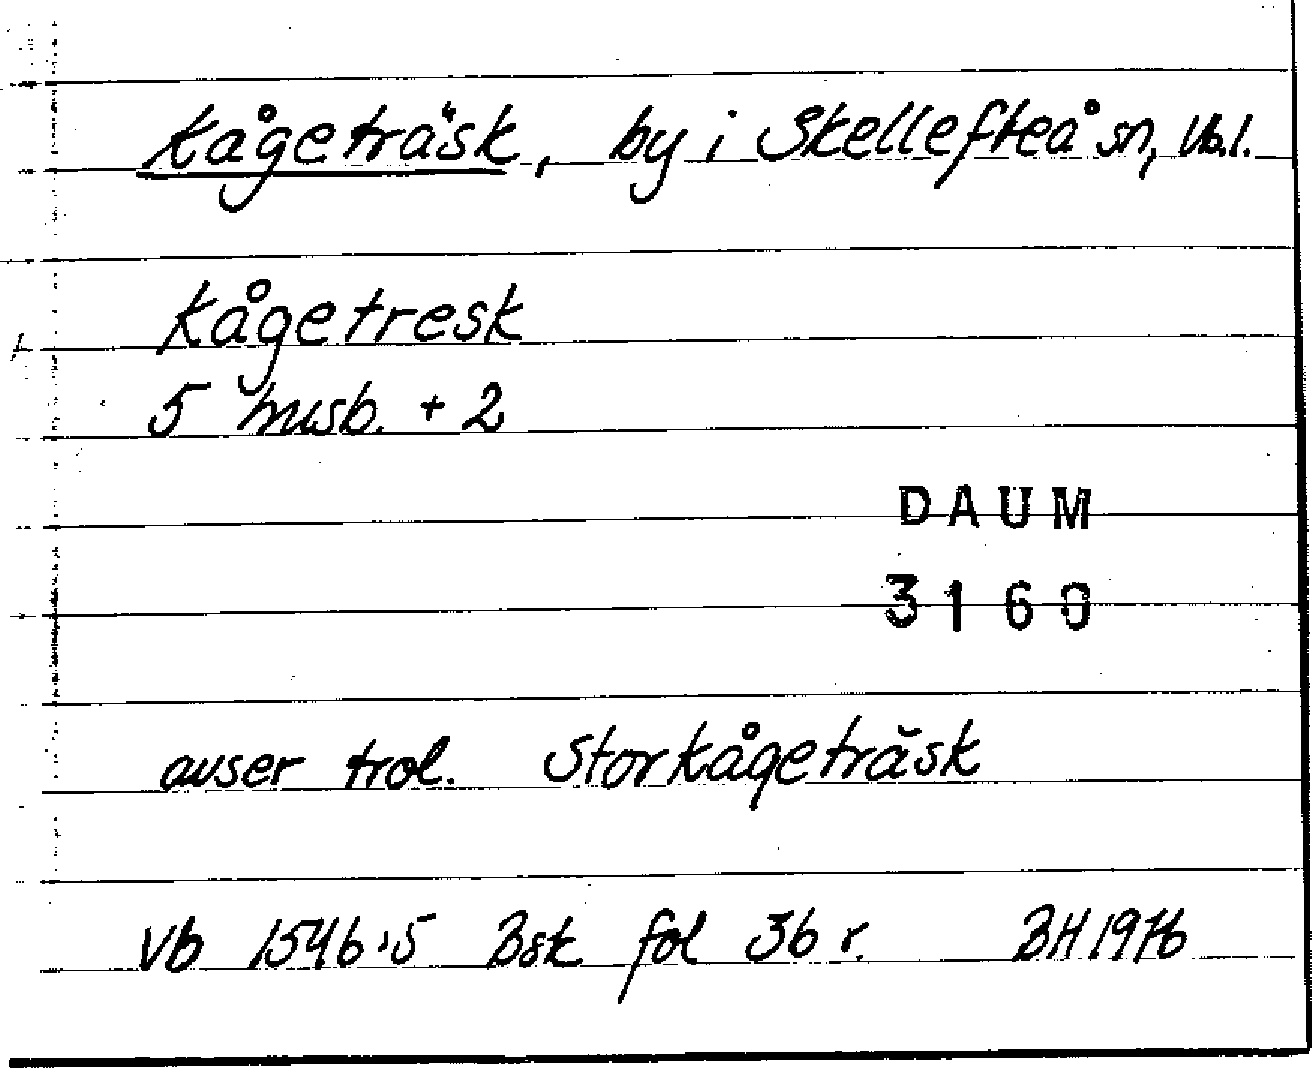 Kågeträsk, by i Skellefteå sn, Vb.l.
Kågetresk
5 husb. + 2
DAUM
3160
avser trol. Storkågeträsk
Vb 1546:5 Bsk fol 36 r. BH 1976